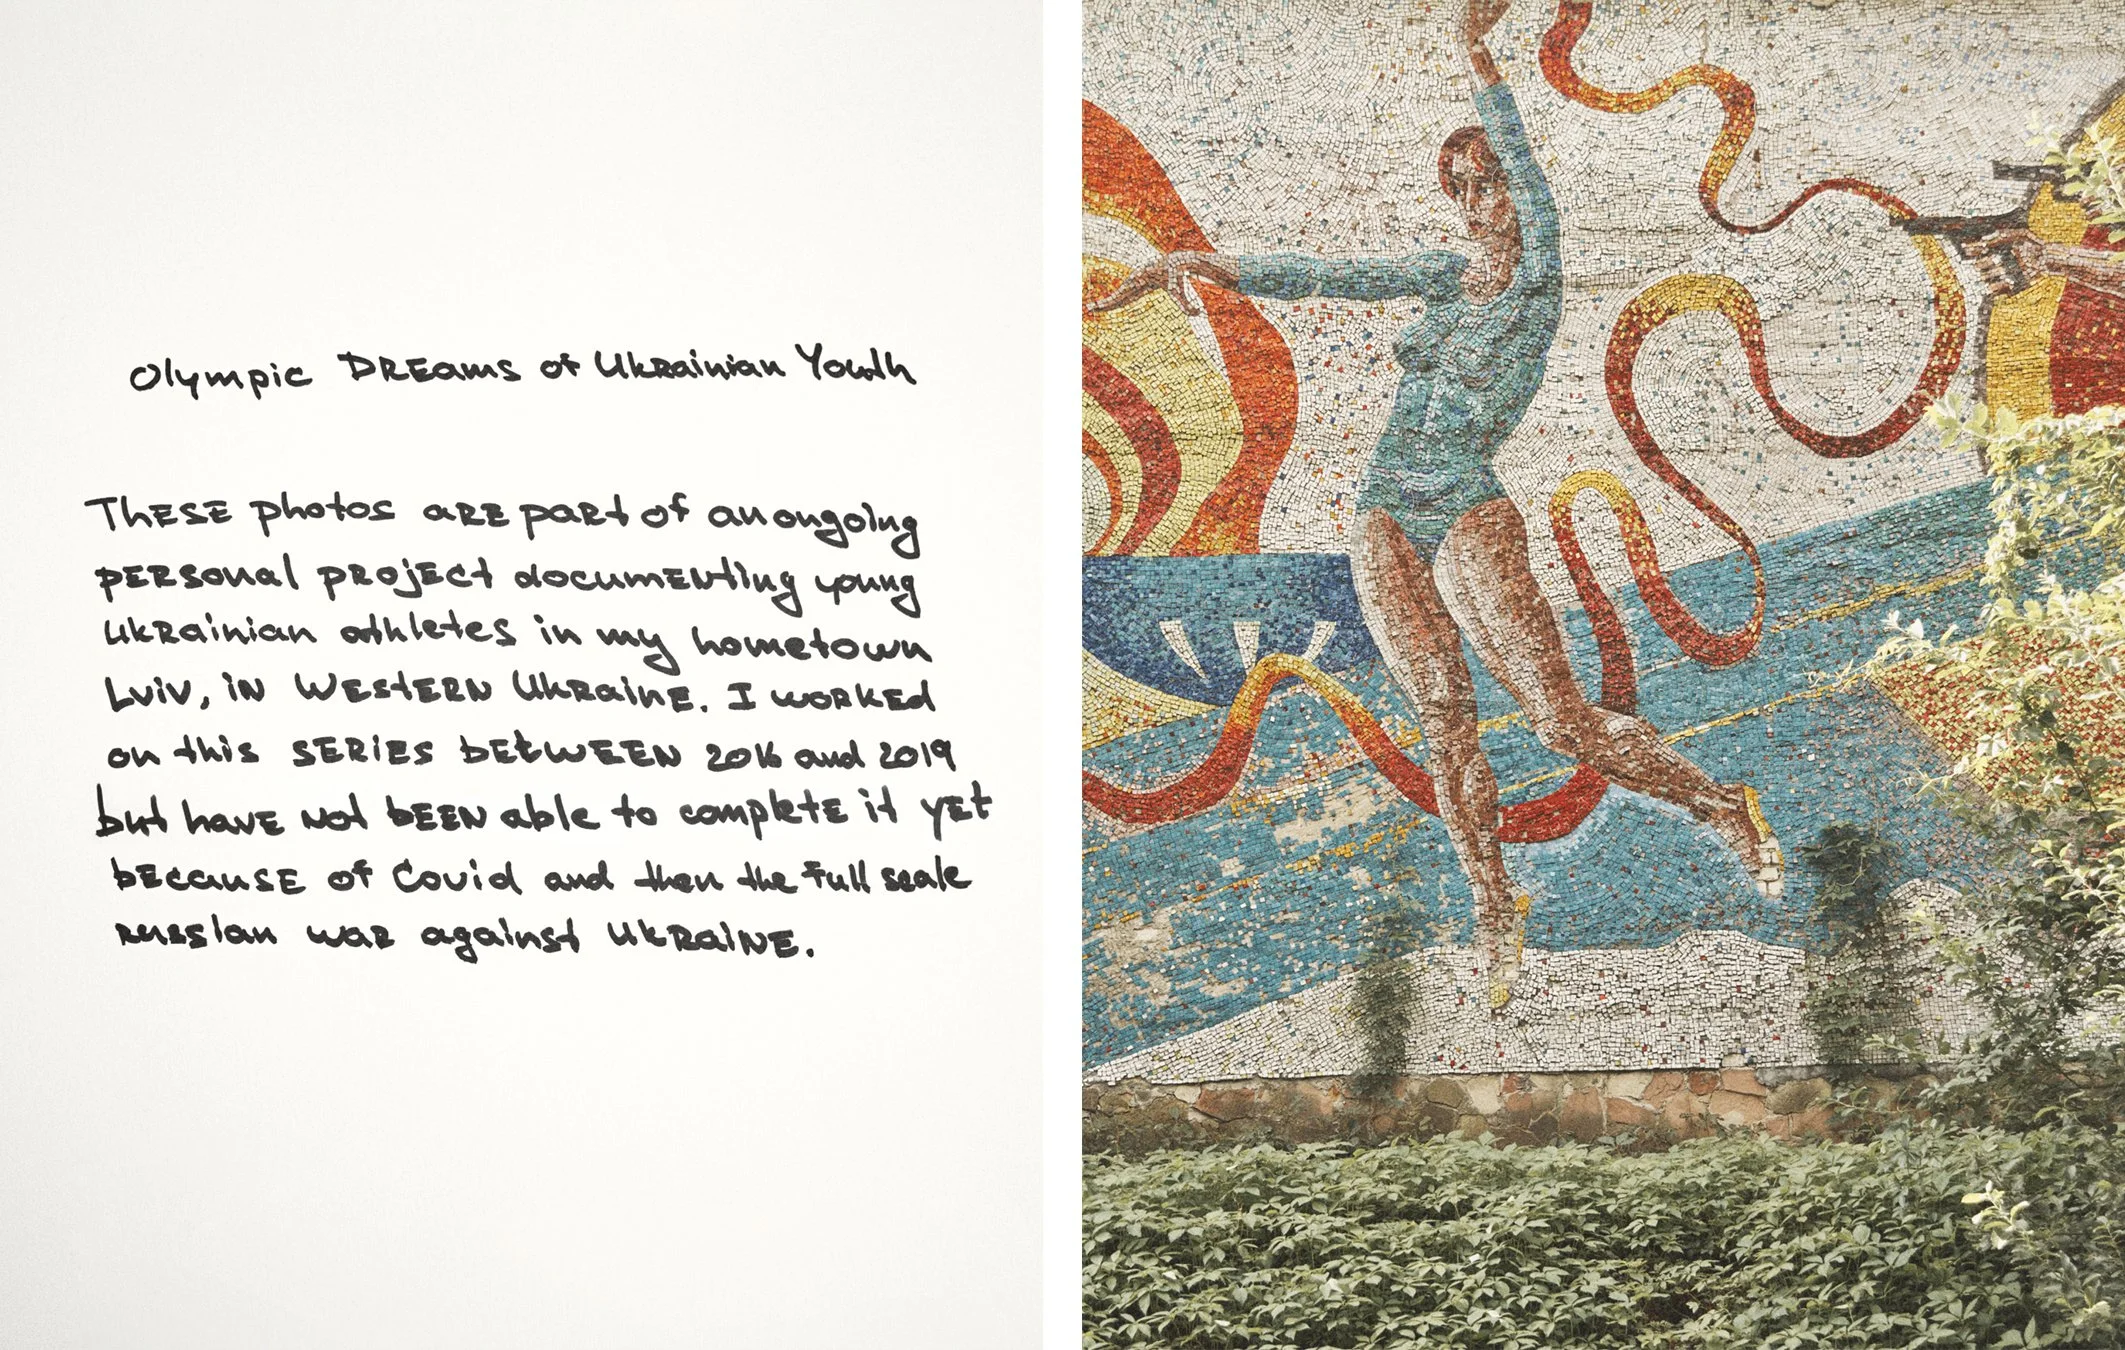 Olympic Dreams of Ukrainian Youth
These photos are part of an ongoing
personal project documenting young
Ukrainian athletes in my hometown
Lviv, in Western Ukraine. I worked
on this series between 2016 and 2019
but have not been able to complete it yet
because of Covid and then the full scale
russian war against Ukraine.